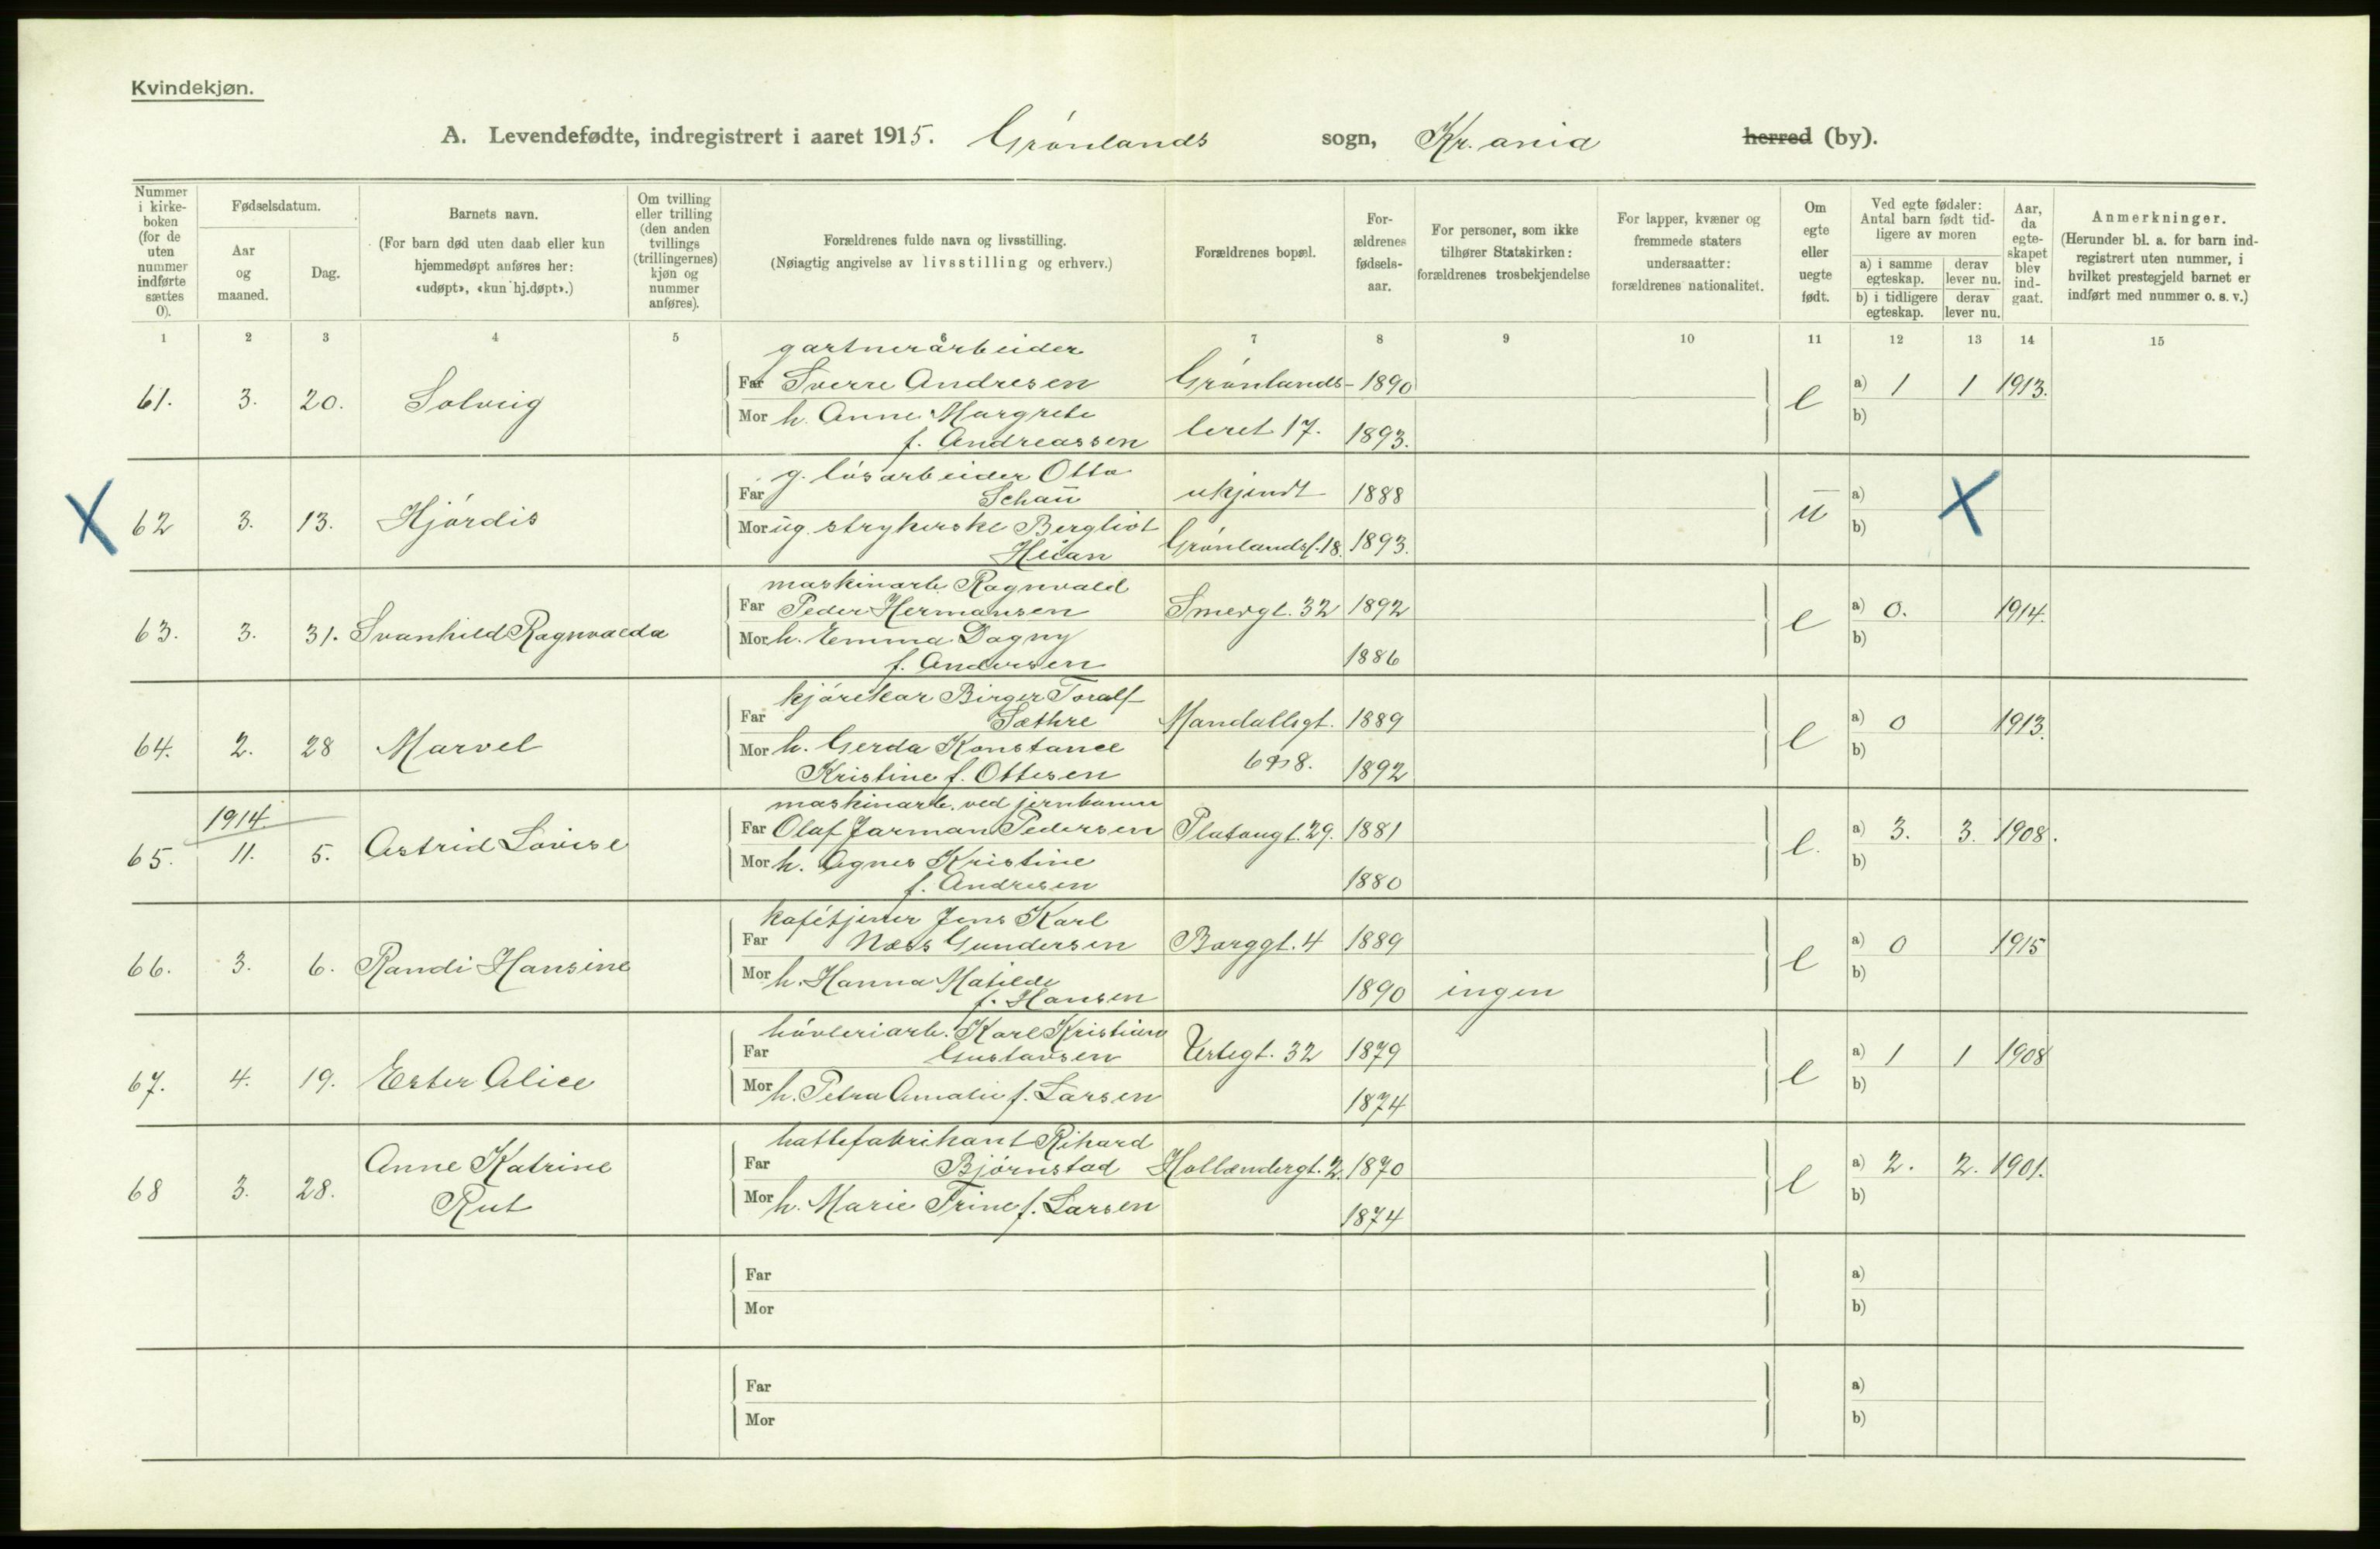 Kvindekjøn.
A. Levendefødte, indregistrert i aaret 1915. Grønlands sogn, Kr.ania herred (by).
Nummer i kirke-boken (for de uten nummer indførte sættes 0).
Fødselsdatum.
Aar og maaned.
Dag.
Barnets navn.
(For barn død uten daab eller kun hjemmedøpt anføres her: «udøpt», «kun hj.døpt».)
Om tvilling eller trilling (den anden tvillings (trillingernes) kjøn og nummer anføres).
Forældrenes fulde navn og livsstilling.
(Nøiagtig angivelse av livsstilling og erhverv.)
Forældrenes bopæl.
For-ældrenes fødsels-aar.
For personer, som ikke tilhører Statskirken: forældrenes trosbekjendelse
For lapper, kvæner og fremmede staters undersaatter: forældrenes nationalitet.
Om egte eller uegte født.
Ved egte fødsler: Antal barn født tid-ligere av moren
a) i samme egteskap.
derav lever nu.
b) i tidligere egteskap.
derav lever nu.
Aar, da egte-skapet blev ind-gaat.
Anmerkninger.
(Herunder bl. a. for barn ind-registrert uten nummer, i hvilket prestegjeld barnet er indført med nummer o. s. v.)
1 2 3 4 5 6 7 8 9 10 11 12 13 14 15
gartnerarbeider
61. 3. 20. Solveig Far Sverre Andresen Grønlands- 1890 e a) 1 1 1913.
Mor h. Anne Margrete leret 17. 1893. b)
f. Andreassen
g. løsarbeider Otto
X 62 3. 13. Hjørdis Far Schau ukjendt 1888 u a) X
Mor ug. strykerske Bergliot Grønlandsl. 18. 1893. b)
Heian
maskinarb. Ragnvald
63. 3. 31. Svanhild Ragnvalda Far Peder Hermansen Smedgt. 32 1892 e a) 0. 1914.
Mor h. Emma Dagny b)
f. Andersen 1886
kjørekar Birger Toralf
64. 2. 28 Marvel Far Sæthre Mandallsgt. 1889 e a) 0 1913.
Mor h. Gerda Konstance b)
Kristine f. Ottesen 1892
maskinarb. ved jernbanen
1914
65. 11. 5. Astrid Lovise Far Olaf Jarman Pedersen Platougt. 29. 1881 e. a) 3. 3. 1908.
Mor h. Agnes Kristine b)
f. Andresen 1880
kafétjener Jens Karl
66. 3. 6. Randi Hansine Far Næss Gundersen Borggt. 4 1889 e a) 0 1915
Mor h. Hanna Matilde b)
f. Hansen 1890 ingen
høvleriarb. Karl Kristian
67. 4. 19. Ester Alice Far Gustavsen Urtegt. 32 1879 e a) 1 1 1908
Mor h. Petra Amalie f. Larsen 1874 b)
hattefabrikant Rikard
68 3. 28. Anne Katrine Far Bjørnstad Hollændergt. 2. 1870 e a) 2. 2. 1901.
Rut Mor h. Marie Trine f. Larsen 1874 b)
Far a)
Mor b)
Far a)
Mor b)